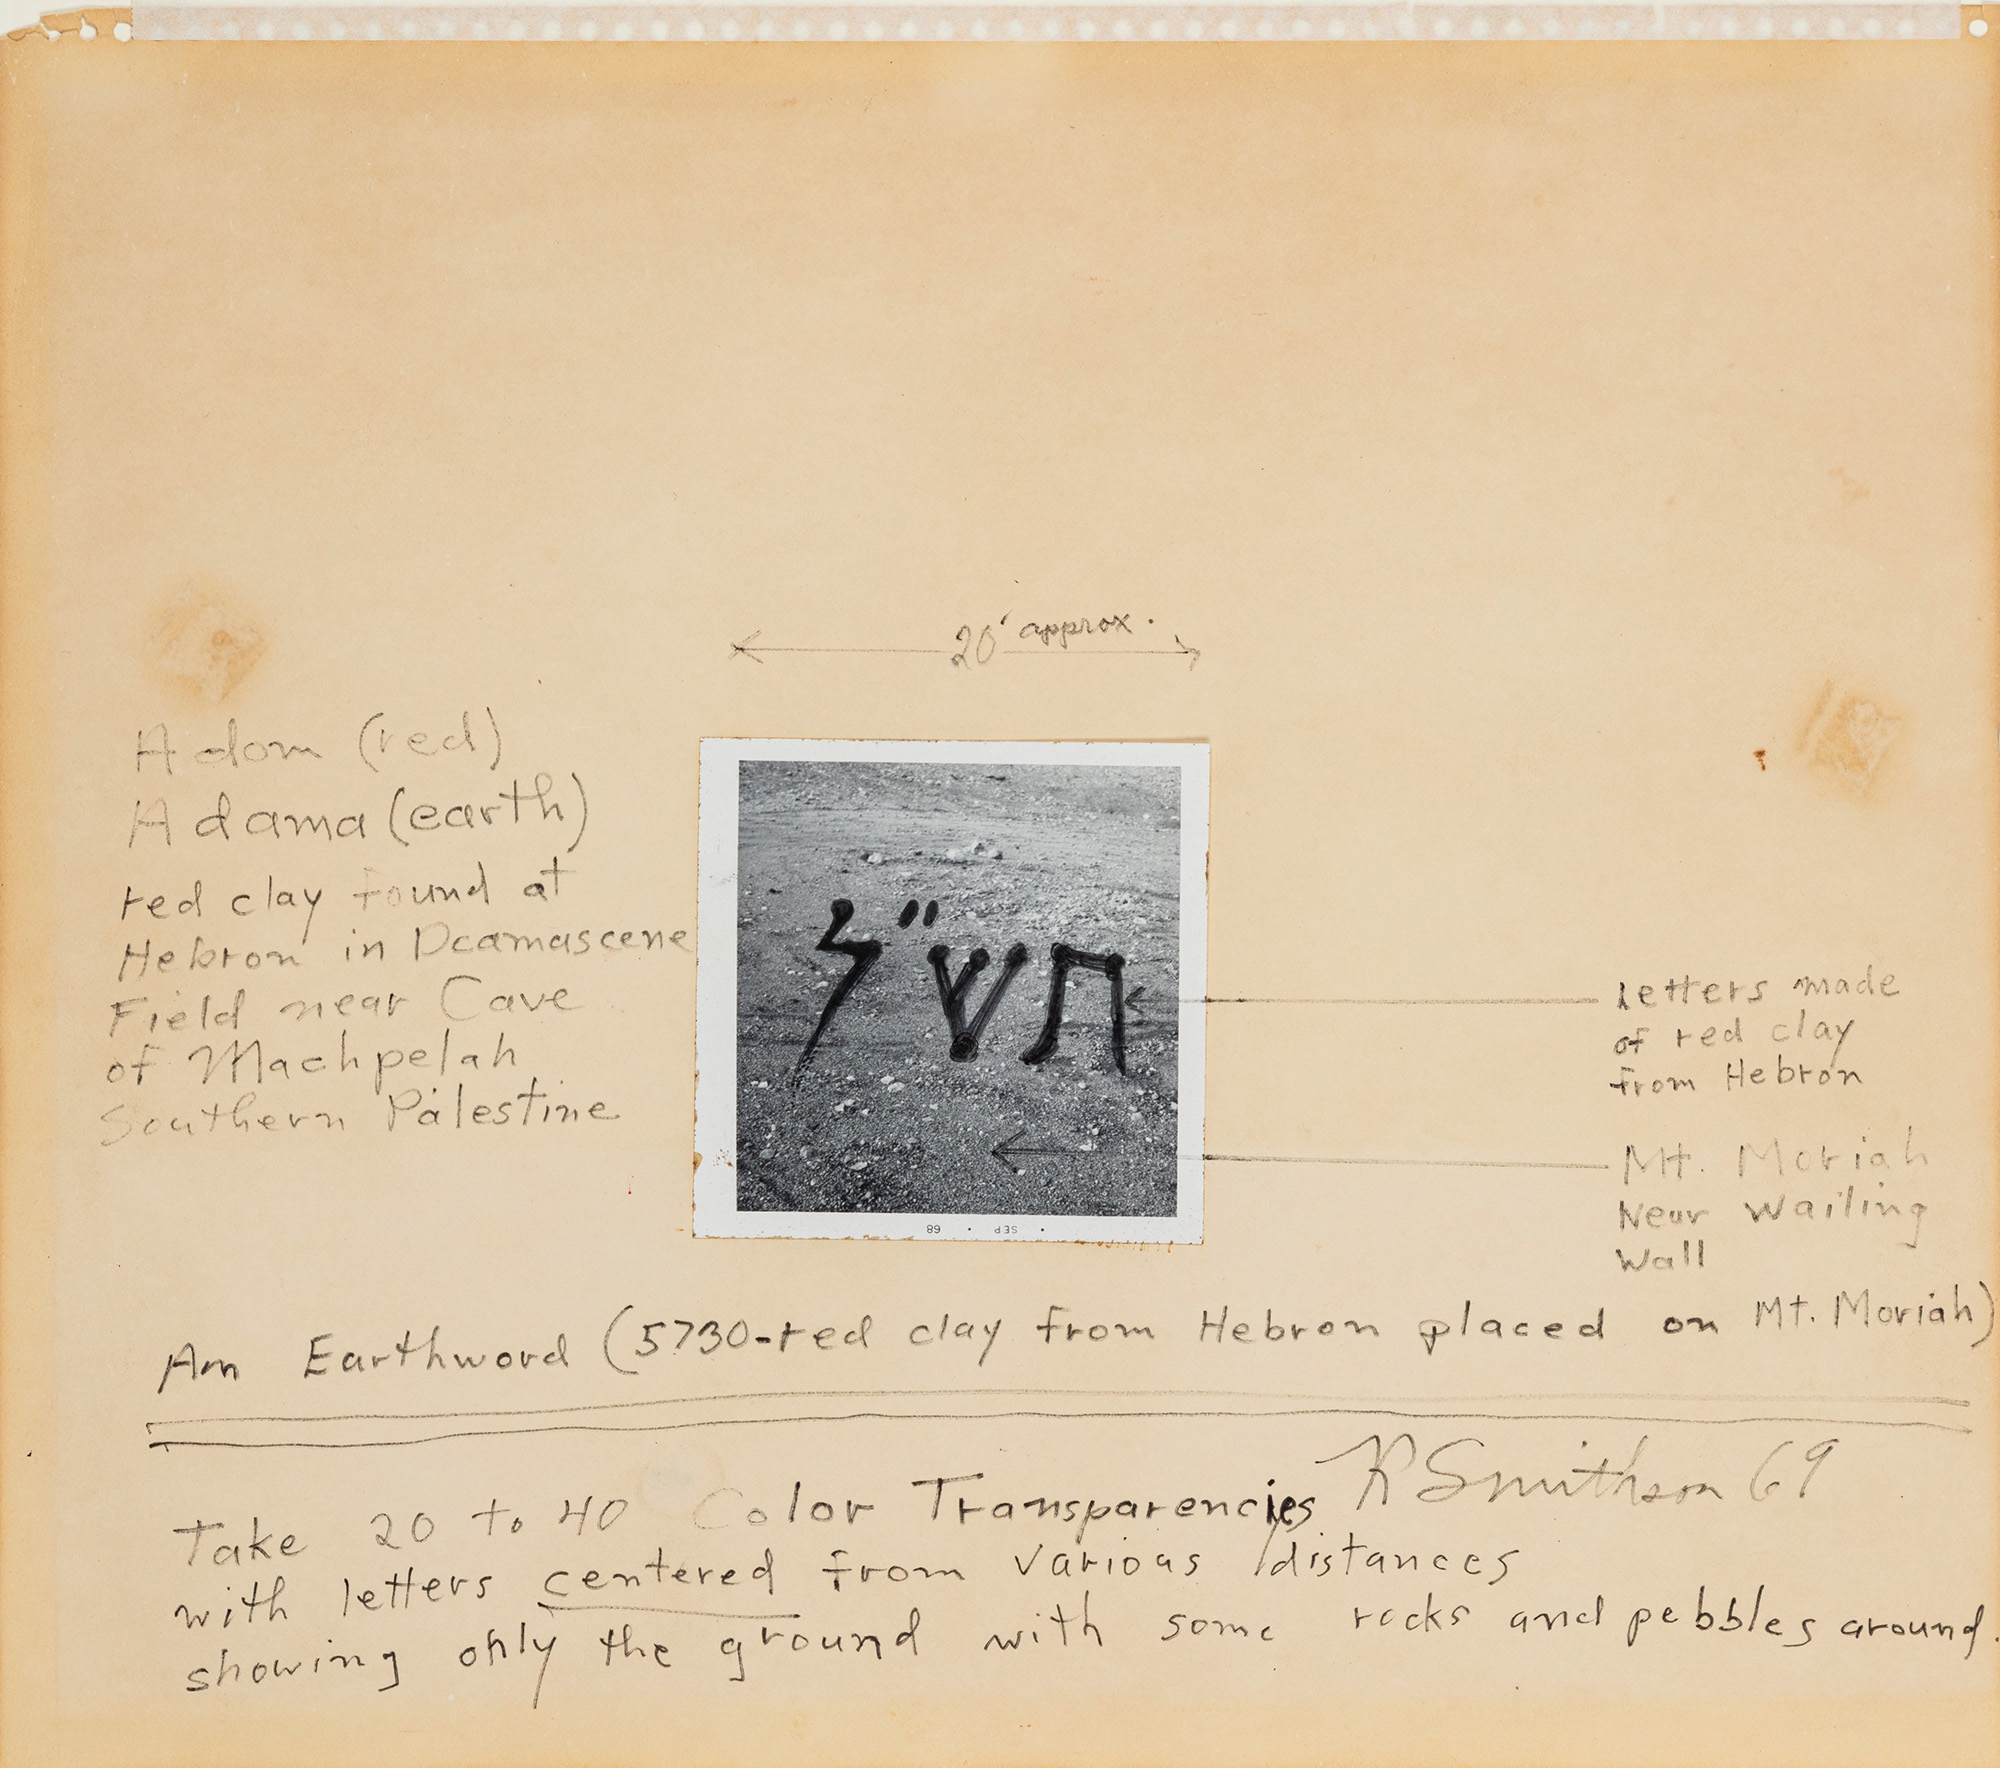 20' approx.
Adom (red)
Adama (earth)
red clay found at
Hebron in Dcamascene
Field near Cave
of Machpelah
Southern Palestine
תש"ל
letters made
of red clay
from Hebron
Mt. Moriah
Near Wailing
Wall
• SEP • 68
An Earthword (5730-red clay from Hebron placed on Mt. Moriah)
R Smithson 69
Take 20 to 40 Color Transparencies
with letters centered from various distances
showing only the ground with some rocks and pebbles around.